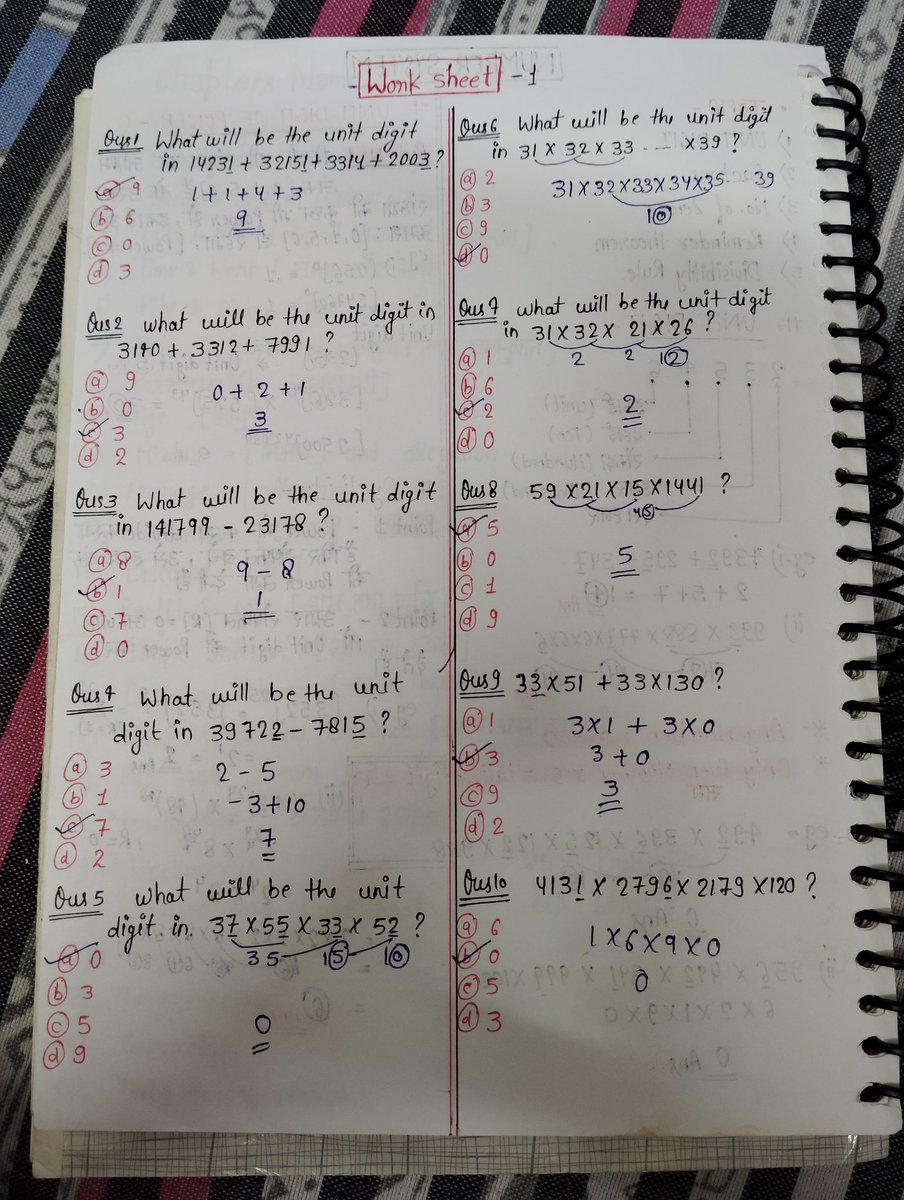 Work sheet - 1
Ques 1 What will be the unit digit
in 14231 + 32151 + 3314 + 2003 ?
a 9
1+1+4+3
b 6
9
c 0
d 3
Ques 2 what will be the unit digit in
3170 + 3312 + 7991 ?
a 9
0 + 2 + 1
b 0
3
c 3
d 2
Ques 3 What will be the unit digit
in 141799 - 23178 ?
a 8
9 - 8
b 1
1
c 7
d 0
Ques 4 What will be the unit
digit in 39722 - 7815 ?
a 3
2 - 5
b 1
-3+10
c 7
7
d 2
Ques 5 what will be the unit
digit in. 37 x 55 x 33 x 52 ?
a 0
35 15 10
b 3
c 5
0
d 9
Ques 6 What will be the unit digit
in 31 x 32 x 33 ... x 39 ?
a 2
31x32x33x34x35 ... 39
b 3
10
c 9
d 0
Ques 7 what will be the unit digit
in 31 x 32 x 21 x 26 ?
a 1
2 2 12
b 6
c 2
2
d 0
Ques 8 59 x 21 x 15 x 1441 ?
45
a 5
b 0
5
c 1
d 9
Ques 9 33 x 51 + 33 x 130 ?
a 1
3x1 + 3x0
b 3
3+0
c 9
3
d 2
Ques 10 4131 x 2796 x 2179 x 120 ?
a 6
1x6x9x0
b 0
0
c 5
d 3